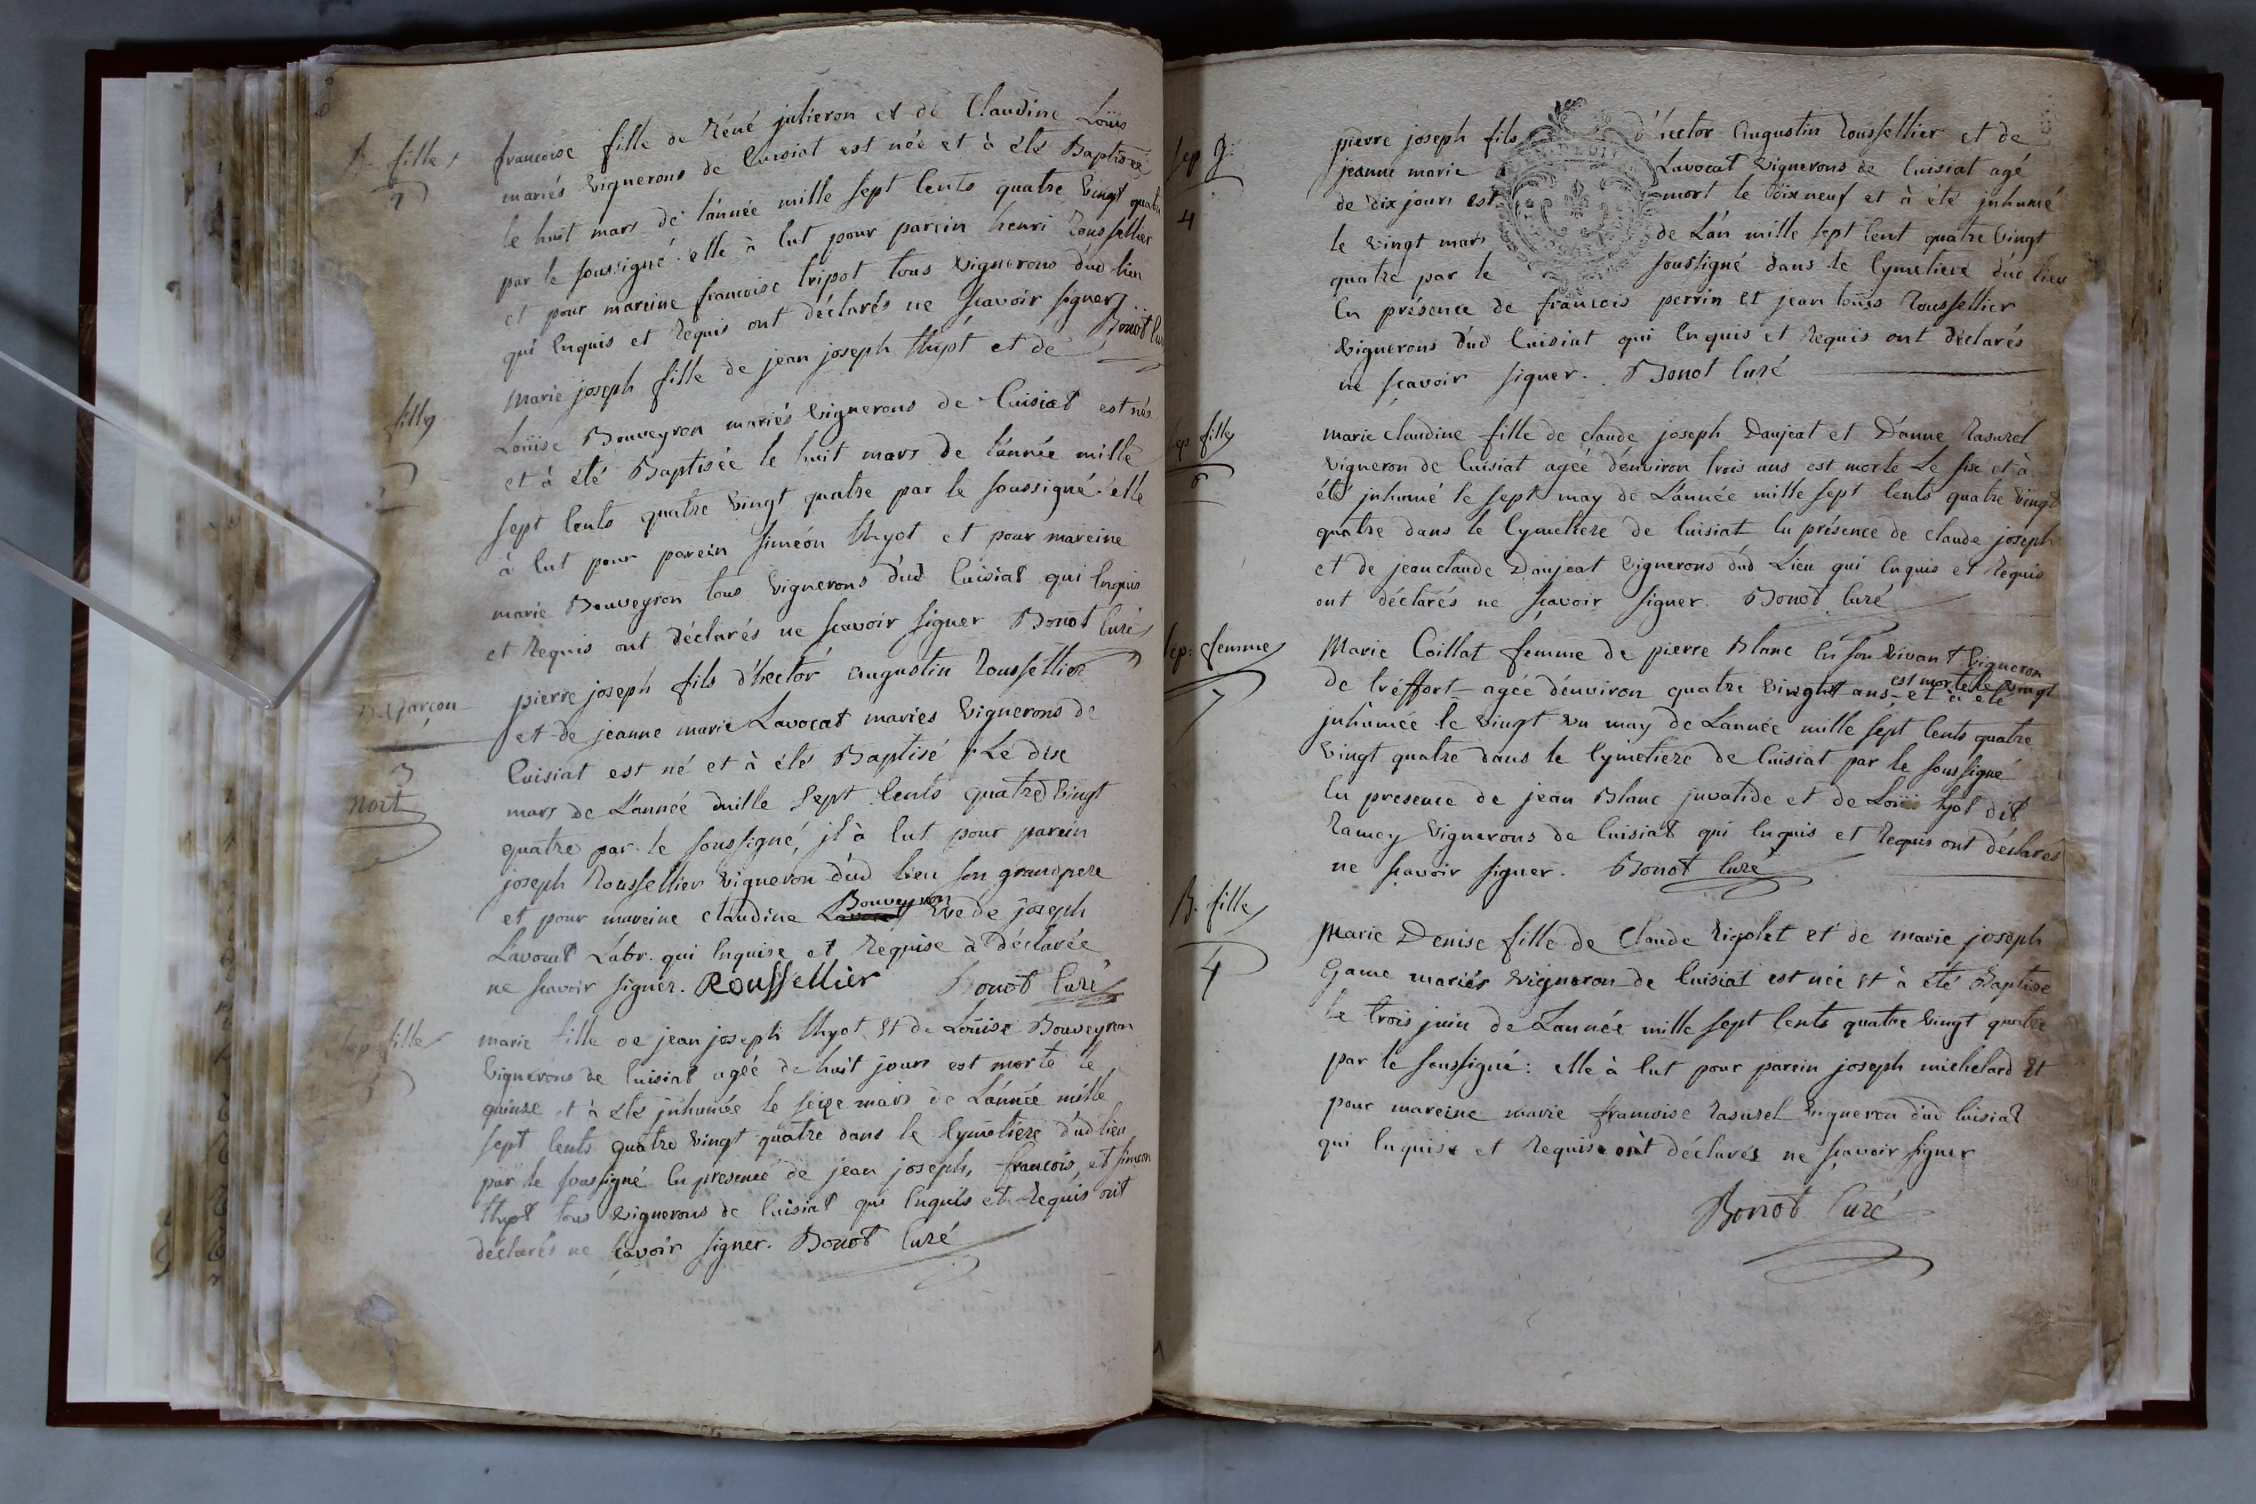 B. fille
2
francoise fille de Réné julieron et de Claudine Loüis
mariés vignerons de Cuisiat est née et à été Baptisée
le huit mars de l'année mille sept Cents quatre vingt quatre
par le soussigné. elle à Eut pour parein henri Roussellier
et pour mareine francoise tripot tous vignerons dud lieu
qui Enquis et Requis ont déclarés ne scavoir signer.
Bonot Curé
fille
Marie joseph fille de jean joseph thyot et de
Loüise Bouveyron mariés vignerons de Cuisiat est née
et à été Baptisée le huit mars de l'année mille
sept Cents quatre vingt quatre par le soussigné. elle
à Eut pour parein siméon thyot et pour mareine
marie Bouveyron tous vignerons dud Cuisiat qui Enquis
et Requis ont déclarés ne scavoir signer Bonot Curé
B. Garçon
3
Mort
pierre joseph fils d'hector augustin Roussellier
et de jeanne marie Lavocat mariés vignerons de
Cuisiat est né et à été Baptisé Le dix
mars de L'année mille sept Cents quatre vingt
quatre par le soussigné, jl à Eut pour parein
joseph Roussellier vigneron dud lieu son grandpere
et pour mareine claudine Bouveyron vve de joseph
Lavocat Labr. qui Enquise et Requise à déclarée
ne scavoir signer. Roussellier Bonot Curé
sep fille
marie fille de jean joseph thyot et de Loüise Bouveyron
vignerons de Cuisiat agée de huit jours est morte le
quinze et à été jnhumée le seize mars de L'année mille
sept Cents quatre vingt quatre dans le Cymetiere dud lieu
par le soussigné En presence de jean joseph, francois, et simeon
thyot tous vignerons de Cuisiat qui Enquis et Requis ont
déclarés ne scavoir signer. Bonot Curé
sep. g.
4
pierre joseph fils d'hector augustin Roussellier et de
jeanne marie Lavocat vignerons de Cuisiat agé
de dix jours est mort le dix neuf et à été jnhumé
le vingt mars de L'an mille sept Cent quatre vingt
quatre par le soussigné dans le Cymetiere dud lieu
En présence de francois perrin et jean loüis Roussellier
vignerons dud Cuisiat qui Enquis et Requis ont déclarés
ne scavoir signer. Bonot Curé
sep fille
6
marie claudine fille de claude joseph Daujeat et D'anne Rasurel
vigneron de Cuisiat ageé d'environ trois ans est morte Le six et à
été jnhumé le sept may de L'année mille sept Cents quatre vingt
quatre dans le Cymetiere de Cuisiat En présence de claude joseph
et de jean claude Daujeat vignerons dud Lieu qui Enquis et Requis
ont déclarés ne scavoir signer. Bonot Curé
sep. femme
7
Marie Coillat femme de pierre Blanc En son vivant vigneron
de tréffort agée d'environ quatre vingt ans est morte le vingt et à été
jnhumée le vingt un may de L'année mille sept Cents quatre
vingt quatre dans le Cymetiere de Cuisiat par le soussigné
En presence de jean Blanc jnvalide et de Loüis thyot dit
Ramey vignerons de Cuisiat qui Enquis et Requis ont déclarés
ne scavoir signer. Bonot Curé
B. fille
4
Marie Denise fille de Claude Rigolet et de marie joseph
Game mariés vigneron de Cuisiat est née et à été Baptise
le trois juin de L'année mille sept Cents quatre vingt quatre
par le soussigné: elle à Eut pour parein joseph michelard et
pour mareine marie francoise Rasurel vigneron dud Cuisiat
qui Enquise et Requise ont déclarés ne scavoir signer
Bonot Curé